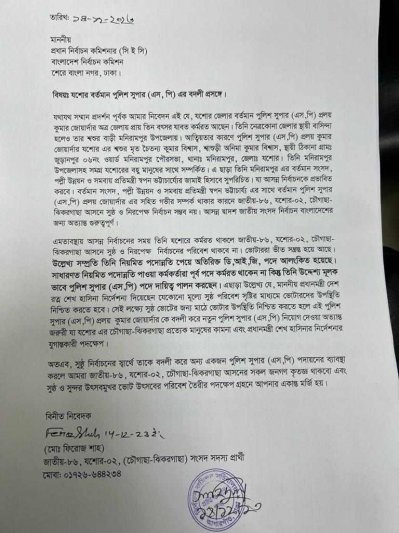 তারিখ: ১৪-১২-২০২৩
মাননীয়
প্রধান নির্বাচন কমিশনার (সি ই সি)
বাংলাদেশ নির্বাচন কমিশন
শেরে বাংলা নগর, ঢাকা।
বিষয়ঃ যশোর বর্তমান পুলিশ সুপার (এস, পি) এর বদলী প্রসঙ্গে।
যথাযথ সম্মান প্রদর্শন পূর্বক আমার নিবেদন এই যে, যশোর জেলার বর্তমান পুলিশ সুপার (এস,পি) প্রলয়
কুমার জোয়ার্দার অত্র জেলায় প্রায় তিন বৎসর যাবত কর্মরত আছেন। তিনি নেত্রকোনা জেলার স্থায়ী বাসিন্দা
হলেও তার শ্বশুর বাড়ী মনিরামপুর উপজেলায়। আত্মিয়তার কারণে পুলিশ সুপার (এস,পি) প্রলয় কুমার
জোয়ার্দার যশোর এর শ্বশুর মৃত চৈতন্য কুমার বিশ্বাস, শ্বাশুড়ী অনিমা কুমার বিশ্বাস, স্থায়ী ঠিকানা গ্রামঃ
জুড়ানপুর ০৬নং ওয়ার্ড মনিরামপুর পৌরসভা, থানাঃ মনিরামপুর, জেলাঃ যশোর। তিনি মনিরামপুর
উপজেলাসহ সমগ্র যশোরের বহু মানুষের সাথে সম্পর্কিত। এ ছাড়া তিনি এ মনিরামপুর এর বর্তমান সাংসদ,
পল্লী উন্নয়ন ও সমবায় প্রতিমন্ত্রী স্বপন ভট্টাচার্য্যের জামাই হিসাবে সুপরিচিত। যা আসন্ন নির্বাচনকে প্রভাবিত
করবে। বর্তমান সাংসদ, পল্লী উন্নয়ন ও সমবায় প্রতিমন্ত্রী স্বপন ভট্টাচার্য্য এর সাথে বর্তমান পুলিশ সুপার
(এস,পি) প্রলয় কুমার জোয়ার্দার এর সহিত গভীর সম্পর্ক থাকার কারনে জাতীয়-৮৬, যশোর-০২, চৌগাছা-
ঝিকরগাছা আসনে সুষ্ঠ ও নিরপেক্ষ নির্বাচন সম্ভব নয়। আসন্ন দ্বাদশ জাতীয় সংসদ নির্বাচন বাংলাদেশের জন্য
অত্যান্ত গুরুত্বপূর্ণ।
এমতাবস্থায় আসন্ন নির্বাচনের সময় তিনি যশোরে কর্মরত থাকলে জাতীয়-৮৬, যশোর-০২, চৌগাছা-
ঝিকরগাছা আসনে সুষ্ঠ ও নিরপেক্ষ নির্বাচনের পরিবেশ থাকবে না। ভোটাররা ভীত সন্ত্রস্ত হয়ে আছে।
উল্লেখ্য সম্প্রতি তিনি নিয়মিত পদোন্নতি পেয়ে অতিরিক্ত ডি,আই,জি, পদে আলংকিত হয়েছে।
সাধারণত নিয়মিত পদোন্নতি পাওয়া কর্মকর্তারা পূর্ব পদে কর্মরত থাকেন না কিন্তু তিনি উদ্দেশ্য মূলক
ভাবে পুলিশ সুপার (এস,পি) পদে দায়িত্ব পালন করছেন। এছাড়া উল্লেখ্য যে, মাননীয় প্রধানমন্ত্রী দেশ
রত্ন শেখ হাসিনা নির্দেশনা দিয়েছেন যেকোনো মূল্যে সুষ্ঠ পরিবেশ সৃষ্টির মাধ্যমে ভোটারদের উপস্থিতি
নিশ্চিত করতে হবে। সেই লক্ষ্যে সুষ্ঠ ভোটের জন্য মাঠে ভোটার উপস্থিতি নিশ্চিত করতে হলে এই পুলিশ
সুপার (এস,পি) প্রলয় কুমার জোয়ার্দার কে বদলী করে নতুন পুলিশ সুপার (এস,পি) নিয়োগ দেওয়া অত্যান্ত
জরুরী যা যশোর এর চৌগাছা-ঝিকরগাছা প্রত্যেক মানুষের কামনা এবং প্রধানমন্ত্রী শেখ হাসিনার নির্দেশনার
যুগান্তকারী পদক্ষেপ।
অতএব, সুষ্ঠ নির্বাচনের স্বার্থে তাকে বদলী করে অন্য একজন পুলিশ সুপার (এস,পি) পদায়নের ব্যাবস্থা
করলে আমরা জাতীয়-৮৬, যশোর-০২, চৌগাছা-ঝিকরগাছা আসনের সকল জনগণ কৃতজ্ঞ থাকবো এবং
সুষ্ঠ ও সুন্দর উৎসবমুখর ভোট উৎসবের পরিবেশ তৈরীর পদক্ষেপ গ্রহনে আপনার একান্ত মর্জি হয়।
বিনীত নিবেদক
(মোঃ ফিরোজ শাহ)
জাতীয়-৮৬, যশোর-০২, (চৌগাছা-ঝিকরগাছা) সংসদ সদস্য প্রার্থী
মোবাঃ ০১৭২৬-৬৪৪২৩৪